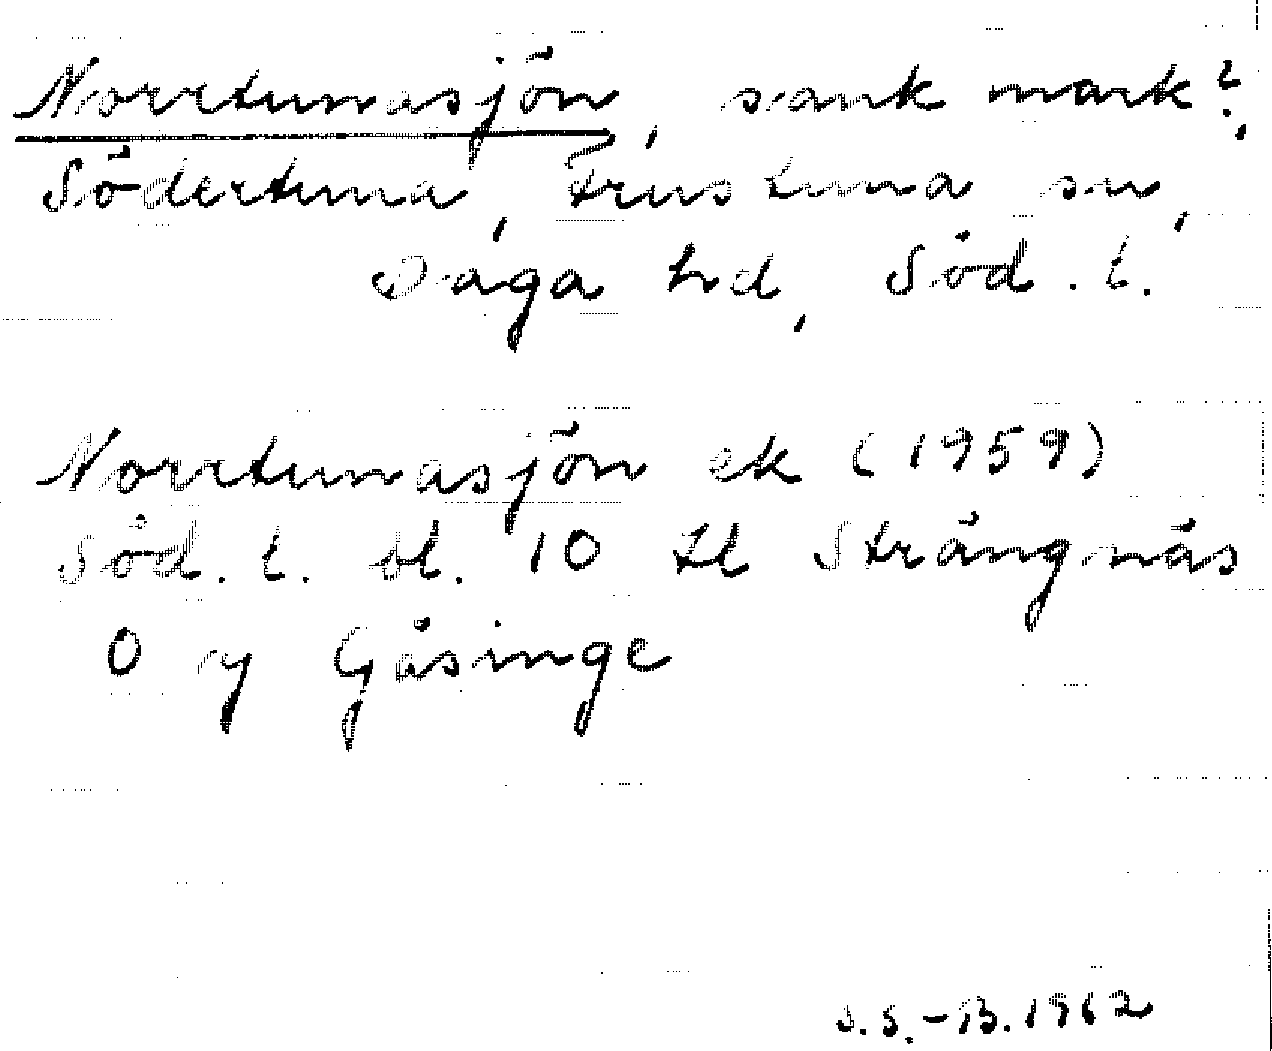 Norrtunasjön, sank mark?,
Södertuna, Frustuna sn,
Daga hd, Söd. l.
Norrtunasjön ek (1959)
Söd. l. bl. 10 It Strängnäs
O y Gåsinge
S.S.-B. 1962